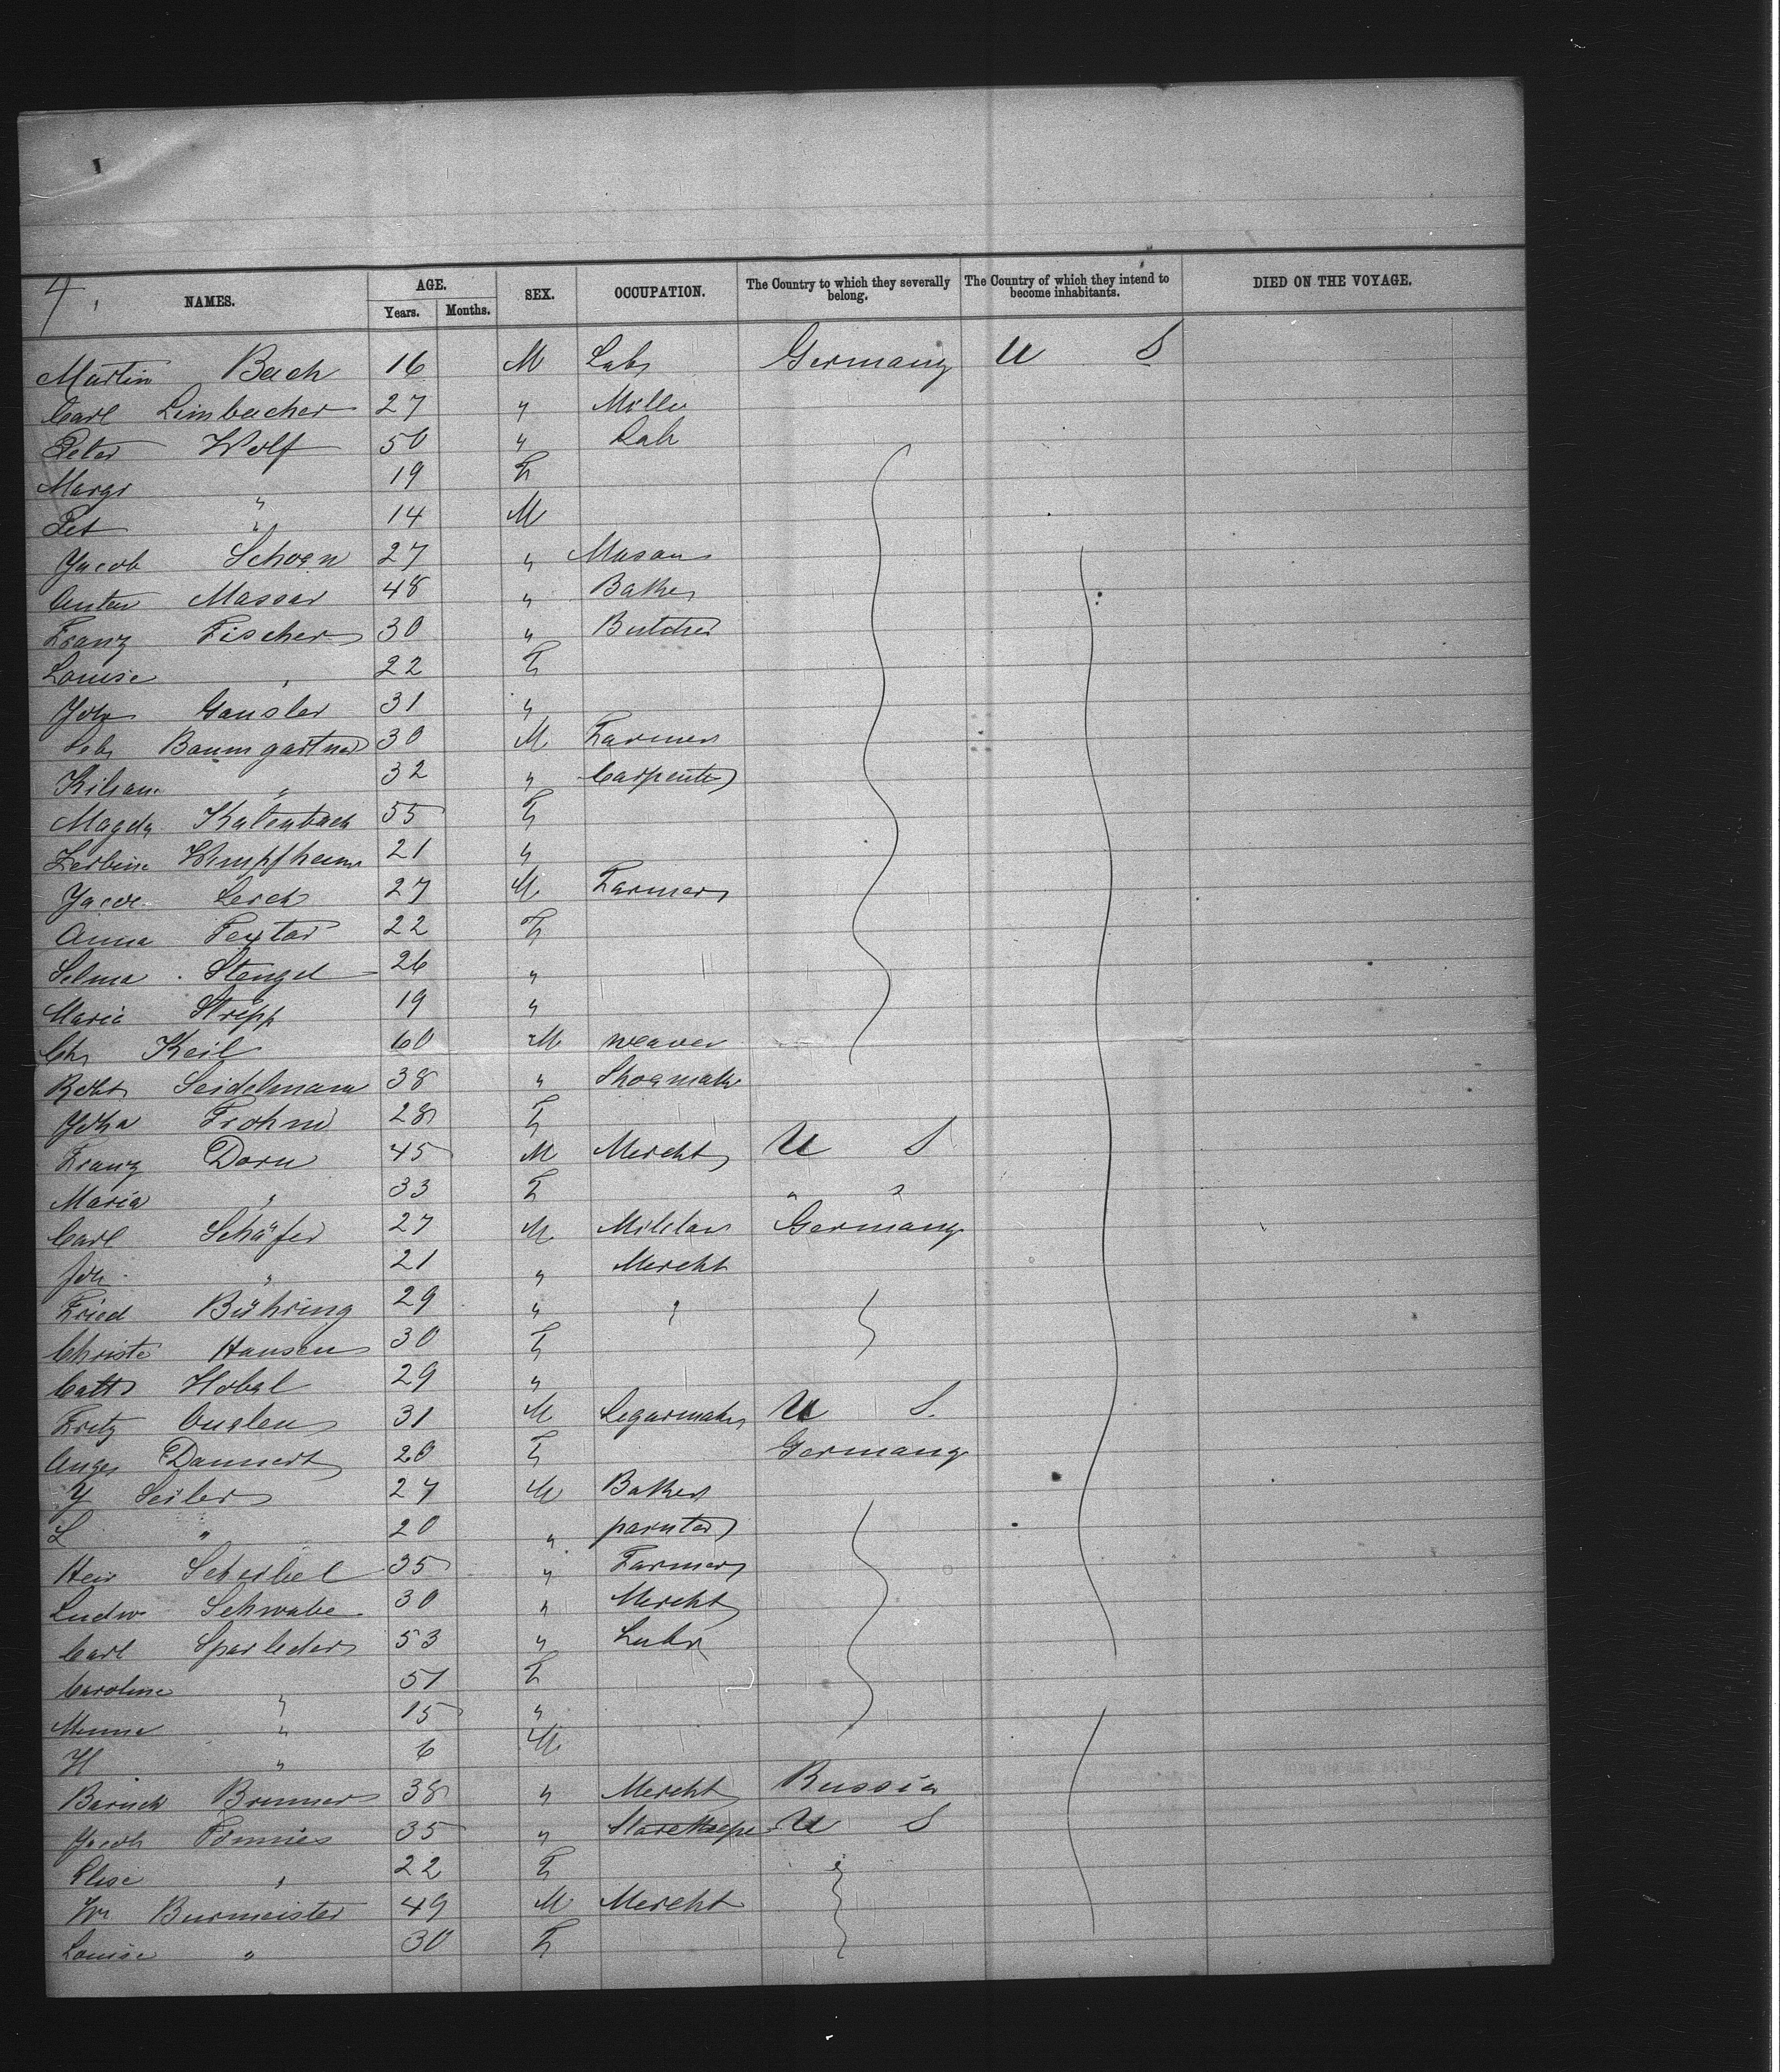 4,
NAMES. AGE. SEX. OCCUPATION. The Country to which they severally belong. The Country of which they intend to become inhabitants. DIED ON THE VOYAGE.
Years. Months.
Martin Bach 16 M Labr Germany U S
Carl Limbacher 27 " Mille
Peter Wolf 50 " Lab
Margr " 19 F
Pet " 14 M
Jacob Schoen 27 " Mason
Anton Massar 48 " Baker
Franz Fischer 30 " Butcher
Louise " 22 F
Joh Gansler 31 "
Seb Baumgartner 30 M Farmer
Kilian " 32 " Carpenter
Magda Kalenbach 55 F
Wimpfheim 21 "
Jacob Lerch 27 M Farmer
Anna Textor 22 F
Selma Stengel 26 "
Maria Stripp 19 "
Chr Keil 60 M weaver
Robt Seidelmann 38 " Shoemak
Joha Frohm 28 F
Franz Dorn 45 M Mercht U S
Maria " 33 F " "
Carl Schäfer 27 M Germany
Joh " 21 " Mercht
Fried Bühring 29 " "
Christe Hansen 30 F
Cath Hobel 29 "
Fritz 31 M Segarmakr U S.
Dannert 20 F Germany
J Seiler 27 M Baker
L " 20 " painter
Hein Scheibel 35 " Farmer
Ludw Schwabe 30 " Mercht
Carl Sparleder 53 " Labr
Caroline " 51 F
Minna " 15 "
H " 6 M
Baruch Brunner 38 " Mercht Russia
Jacob Tönnies 35 " Storekeepe U S
Elise " 22 F "
Wm Burmeister 49 M Mercht
Louise " 30 F